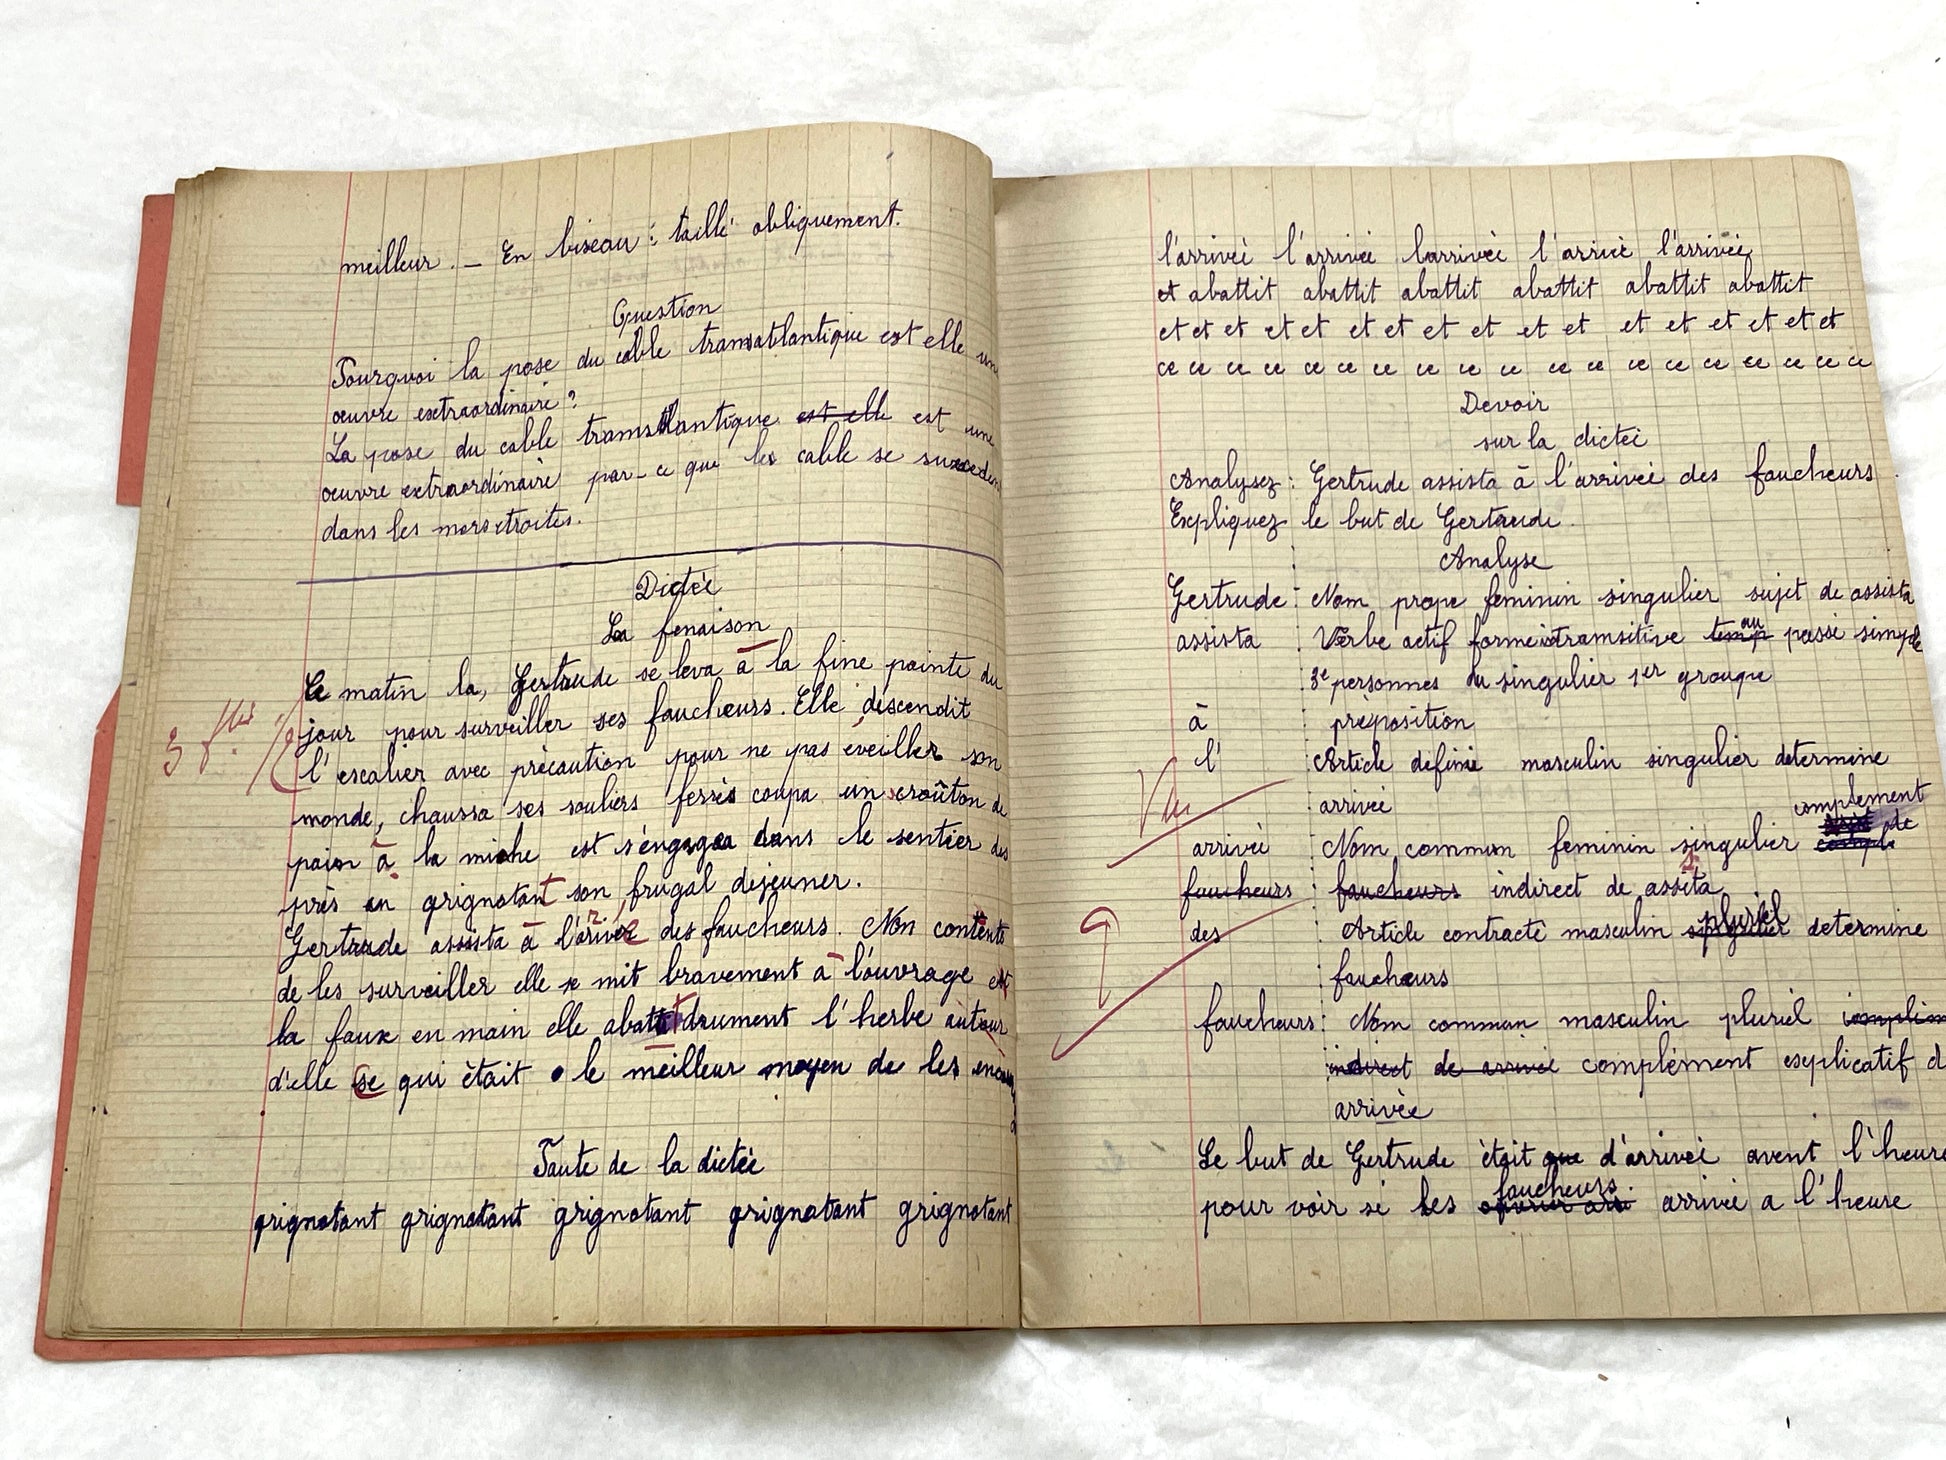 meilleur. _ En biseau : taillé obliquement.
Question
Pourquoi la pose du cable transatlantique est elle une
œuvre extraordinaire ?
La pose du cable transtlantique est elle est une
œuvre extraordinaire par-ce que les cable se succeden
dans les mers etroites.
Dictée
La fenaison
Ce matin la, Gertrude se leva à la fine pointe du
jour pour surveiller ses faucheurs. Elle descendit
l'escalier avec précaution pour ne pas éveiller son
monde, chaussa ses souliers ferrés coupa un croûton de
pain à la miche est s'engagea dans le sentier des
près en grignotant son frugal dejeuner.
Gertrude assista à l'arivée des faucheurs. Non contents
de les surveiller elle se mit bravement à l'ouvrage et
la faux en main elle abattit drument l'herbe autour
d'elle ce qui était le meilleur moyen de les
Faute de la dictée
grignotant grignotant grignotant grignotant grignotant
3 f
l'arrivée l'arrivée larrivée l'arrivé l'arrivée
et abattit abattit abattit abattit abattit abattit
et et et et et et et et et et et et et et et et et
ce ce ce ce ce ce ce ce ce ce ce ce ce ce ce ce ce ce
Devoir
sur la dictée
Analysez : Gertrude assista à l'arrivée des faucheurs.
Expliquez le but de Gertrude.
Analyse
Gertrude : Nom prope feminin singulier sujet de assista
assista : Verbe actif forme intransitive temp au passé simple
3e personnes du singulier 1er groupe
à : préposition
l' : Article défini masculin singulier determine
arrivée
Vu
complement
arrivée : Nom commun feminin singulier de
faucheurs : faucheurs indirect de assita
pluriel
des : Article contracté masculin singulier determine
faucheurs
faucheurs : Nom commun masculin pluriel
indirect de arrivée complément explicatif d
arrivée
Le but de Gertrude était que d'arrivée avent l'heure
faucheurs.
pour voir si les arrivée a l'heure